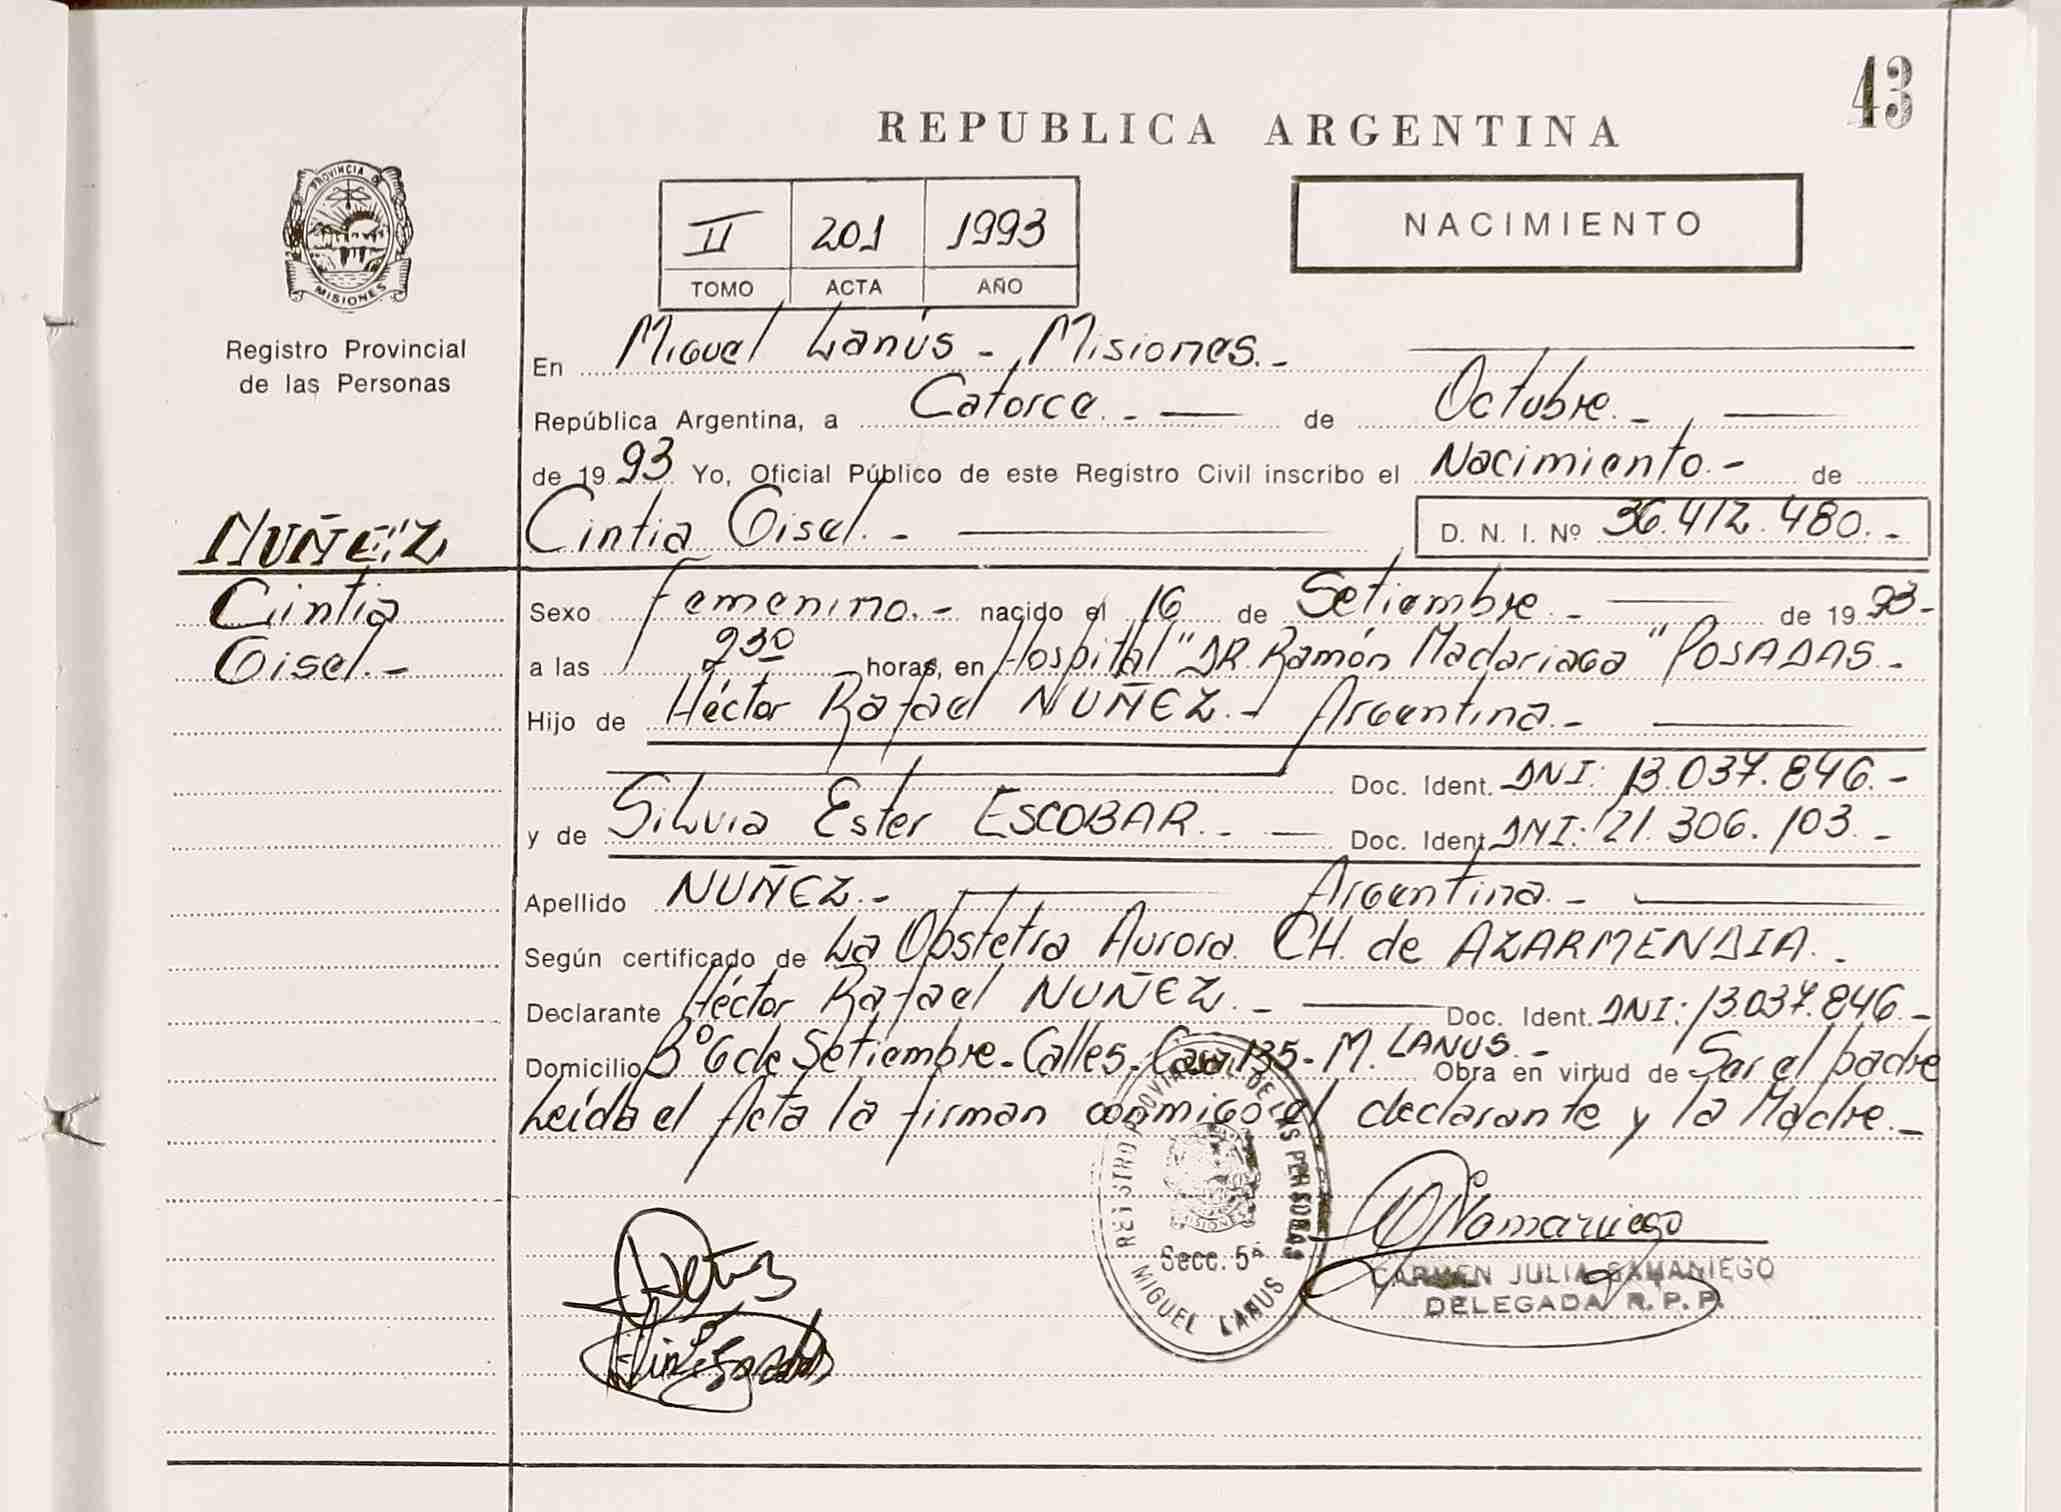 43
REPUBLICA ARGENTINA
PROVINCIA DE
MISIONES
Registro Provincial
de las Personas
II 201 1993
TOMO ACTA AÑO
NACIMIENTO
En Miguel Lanús - Misiones.-
República Argentina, a Catorce.- de Octubre.-
de 19 93 Yo, Oficial Público de este Registro Civil inscribo el Nacimiento.- de
NUÑEZ
Cintia Gisel.- D. N. I. Nº 36.412.480.-
Cintia
Gisel.-
Sexo Femenino.- nacido el 16 de Setiembre.- de 19 93-
a las 9 30 horas, en Hospital "DR. Ramón Madariaga" POSADAS.-
Hijo de Héctor Rafael NUÑEZ.- Argentina.-
Doc. Ident. DNI: 13.037.846.-
y de Silvia Ester ESCOBAR.- Doc. Ident. DNI: 21.306.103.-
Apellido NUÑEZ.- Argentina.-
Según certificado de La Obstetra Aurora. CH. de AZARMENDIA.-
Declarante Héctor Rafael NUÑEZ.- Doc. Ident. DNI: 13.037.846.-
Domicilio Bº 6 de Setiembre- Calle 5- Casa 135- M. LANUS.- Obra en virtud de Ser el padre
Leída el Acta la firman conmigo el declarante y la Madre.-
REGISTRO PROVINCIAL DE LAS PERSONAS
MISIONES
Secc. 5ª
MIGUEL LANUS
CARMEN JULIA SAMANIEGO
DELEGADA R. P. P.